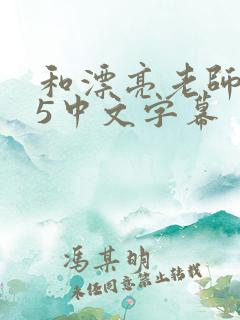 和漂亮老師
5中文字幕
馮某明
未任同意禁止转载